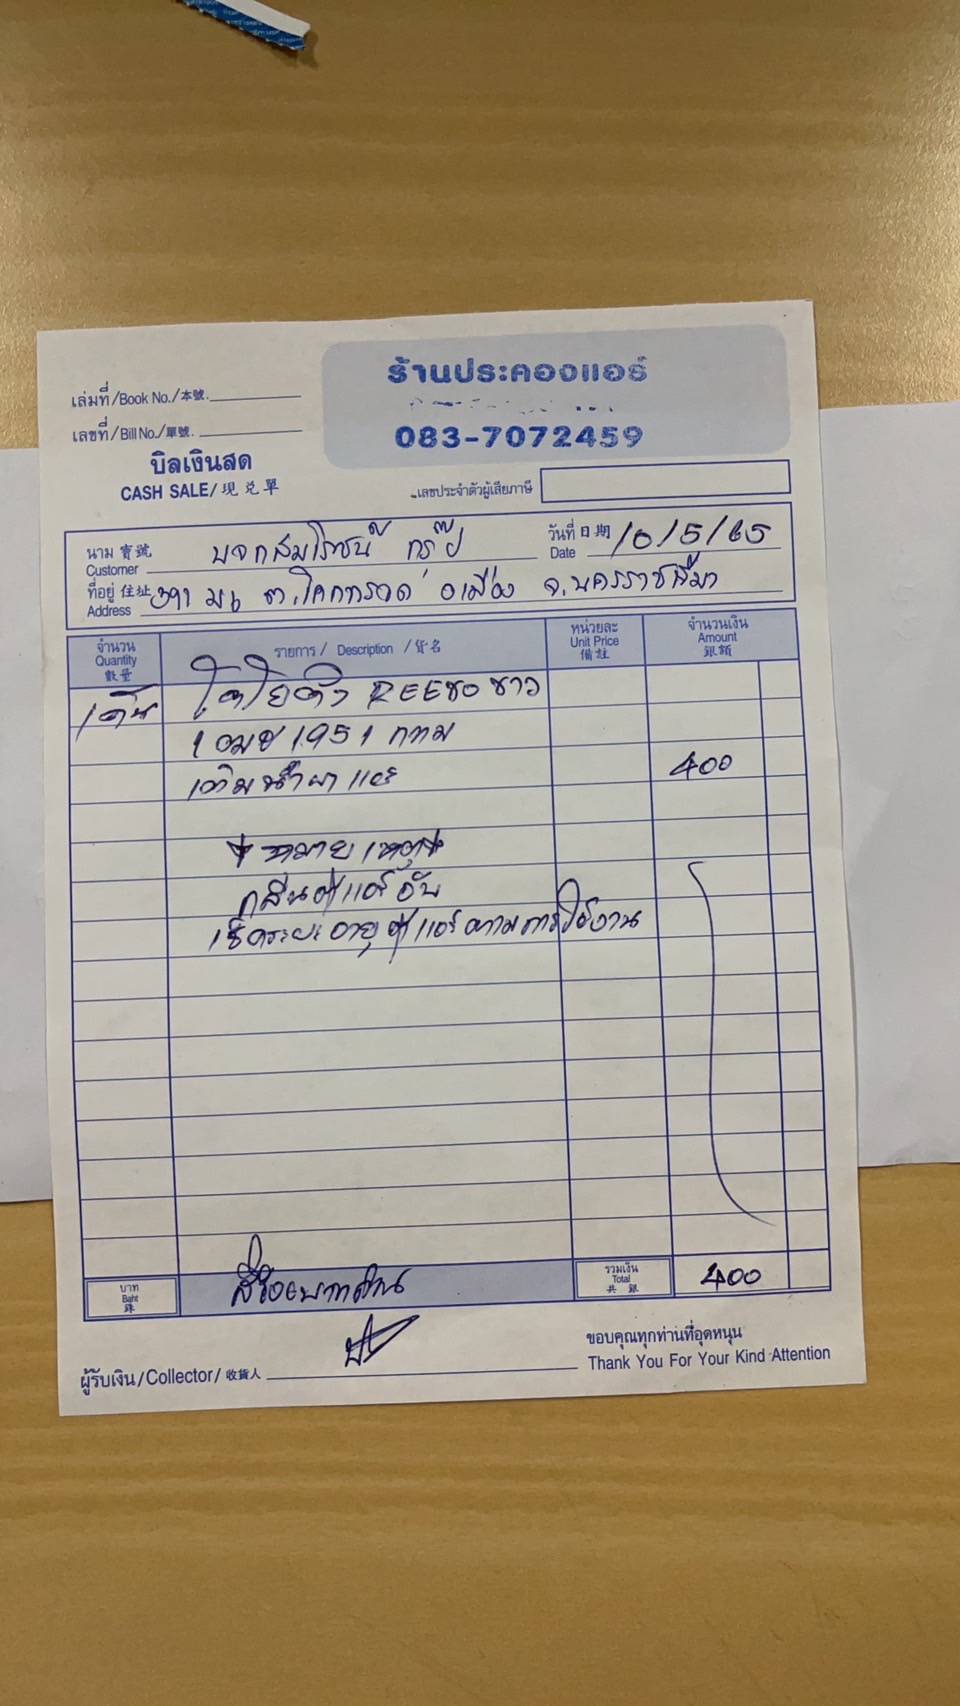 ร้านประคองแอร์
083-7072459
เล่มที่/Book No./本號.
เลขที่/Bill No./單號.
บิลเงินสด
CASH SALE/現兑單
เลขประจำตัวผู้เสียภาษี
นาม 寶號 Customer บจก สมโรชน์ กรุ๊ป
วันที่ 日期 Date 10/5/65
ที่อยู่ 住址 Address 391 ม6 ต.โคกกรวด อ เมือง จ.นครราชสีมา
จำนวน Quantity 數量
รายการ / Description / 貨名
หน่วยละ Unit Price 備註
จำนวนเงิน Amount 銀額
1 คัน โตโยต้า REEVO ขาว
1 ฒฮ 1951 กทม
เติมน้ำยาแอร์ 400
* หมายเหตุ *
กลิ่นตู้แอร์อับ
เช็คระยะอายุตู้แอร์ตามการใช้งาน
บาท Baht 銖
สี่ร้อยบาทถ้วน
รวมเงิน Total 共銀 400
ผู้รับเงิน/Collector/收貨人
ขอบคุณทุกท่านที่อุดหนุน
Thank You For Your Kind Attention